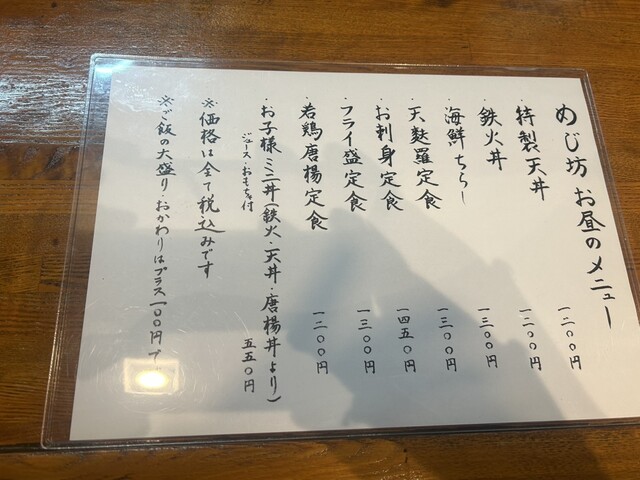 めじ坊 お昼のメニュー
・特製天丼 一二〇〇円
・鉄火丼 一二〇〇円
・海鮮ちらし 一三〇〇円
・天麩羅定食 一三〇〇円
・お刺身定食 一四五〇円
・フライ盛定食 一三〇〇円
・若鶏唐揚定食 一二〇〇円
・お子様ミニ丼(鉄火・天丼・唐揚丼より) 五五〇円
ジュース・おもちゃ付
※価格は全て税込みです
※ご飯の大盛り・おかわりはプラス一〇〇円